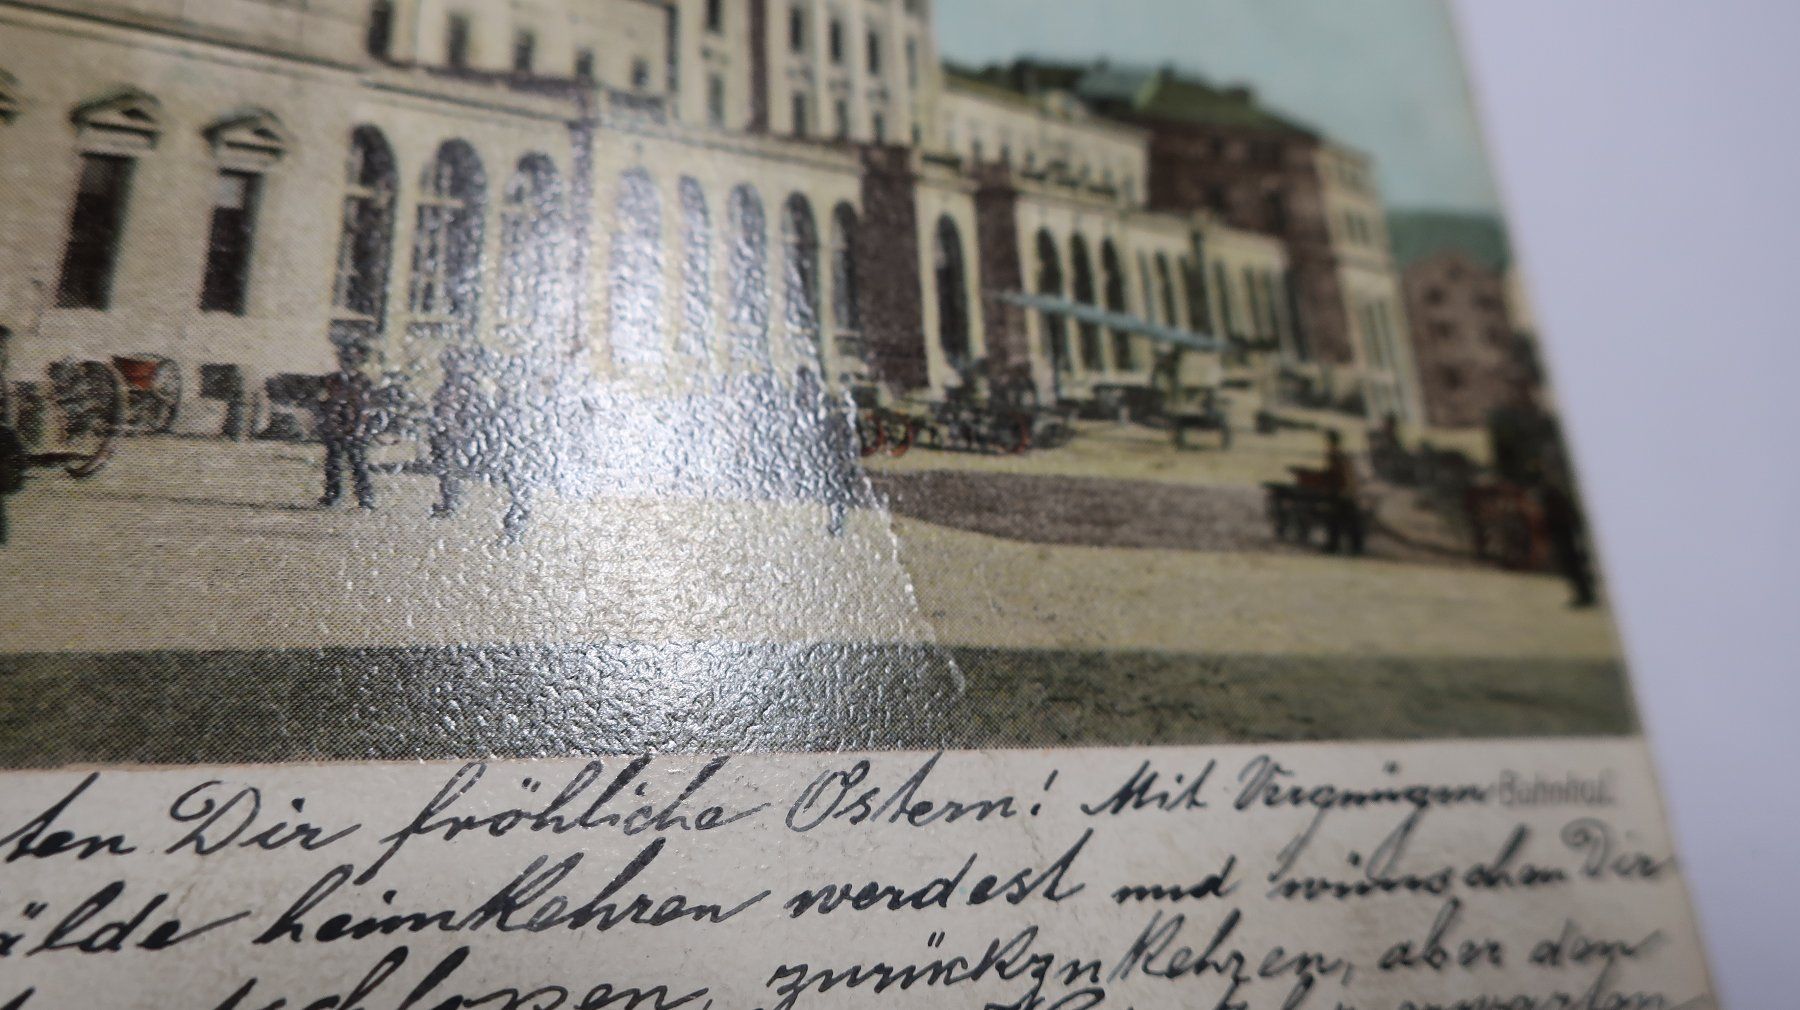 ten Dir fröhliche Ostern! Mit Vergnügen Bahnhof.
älde heimkehren werdest und wünschen Dir
zurückzukehren, aber den
erwarten